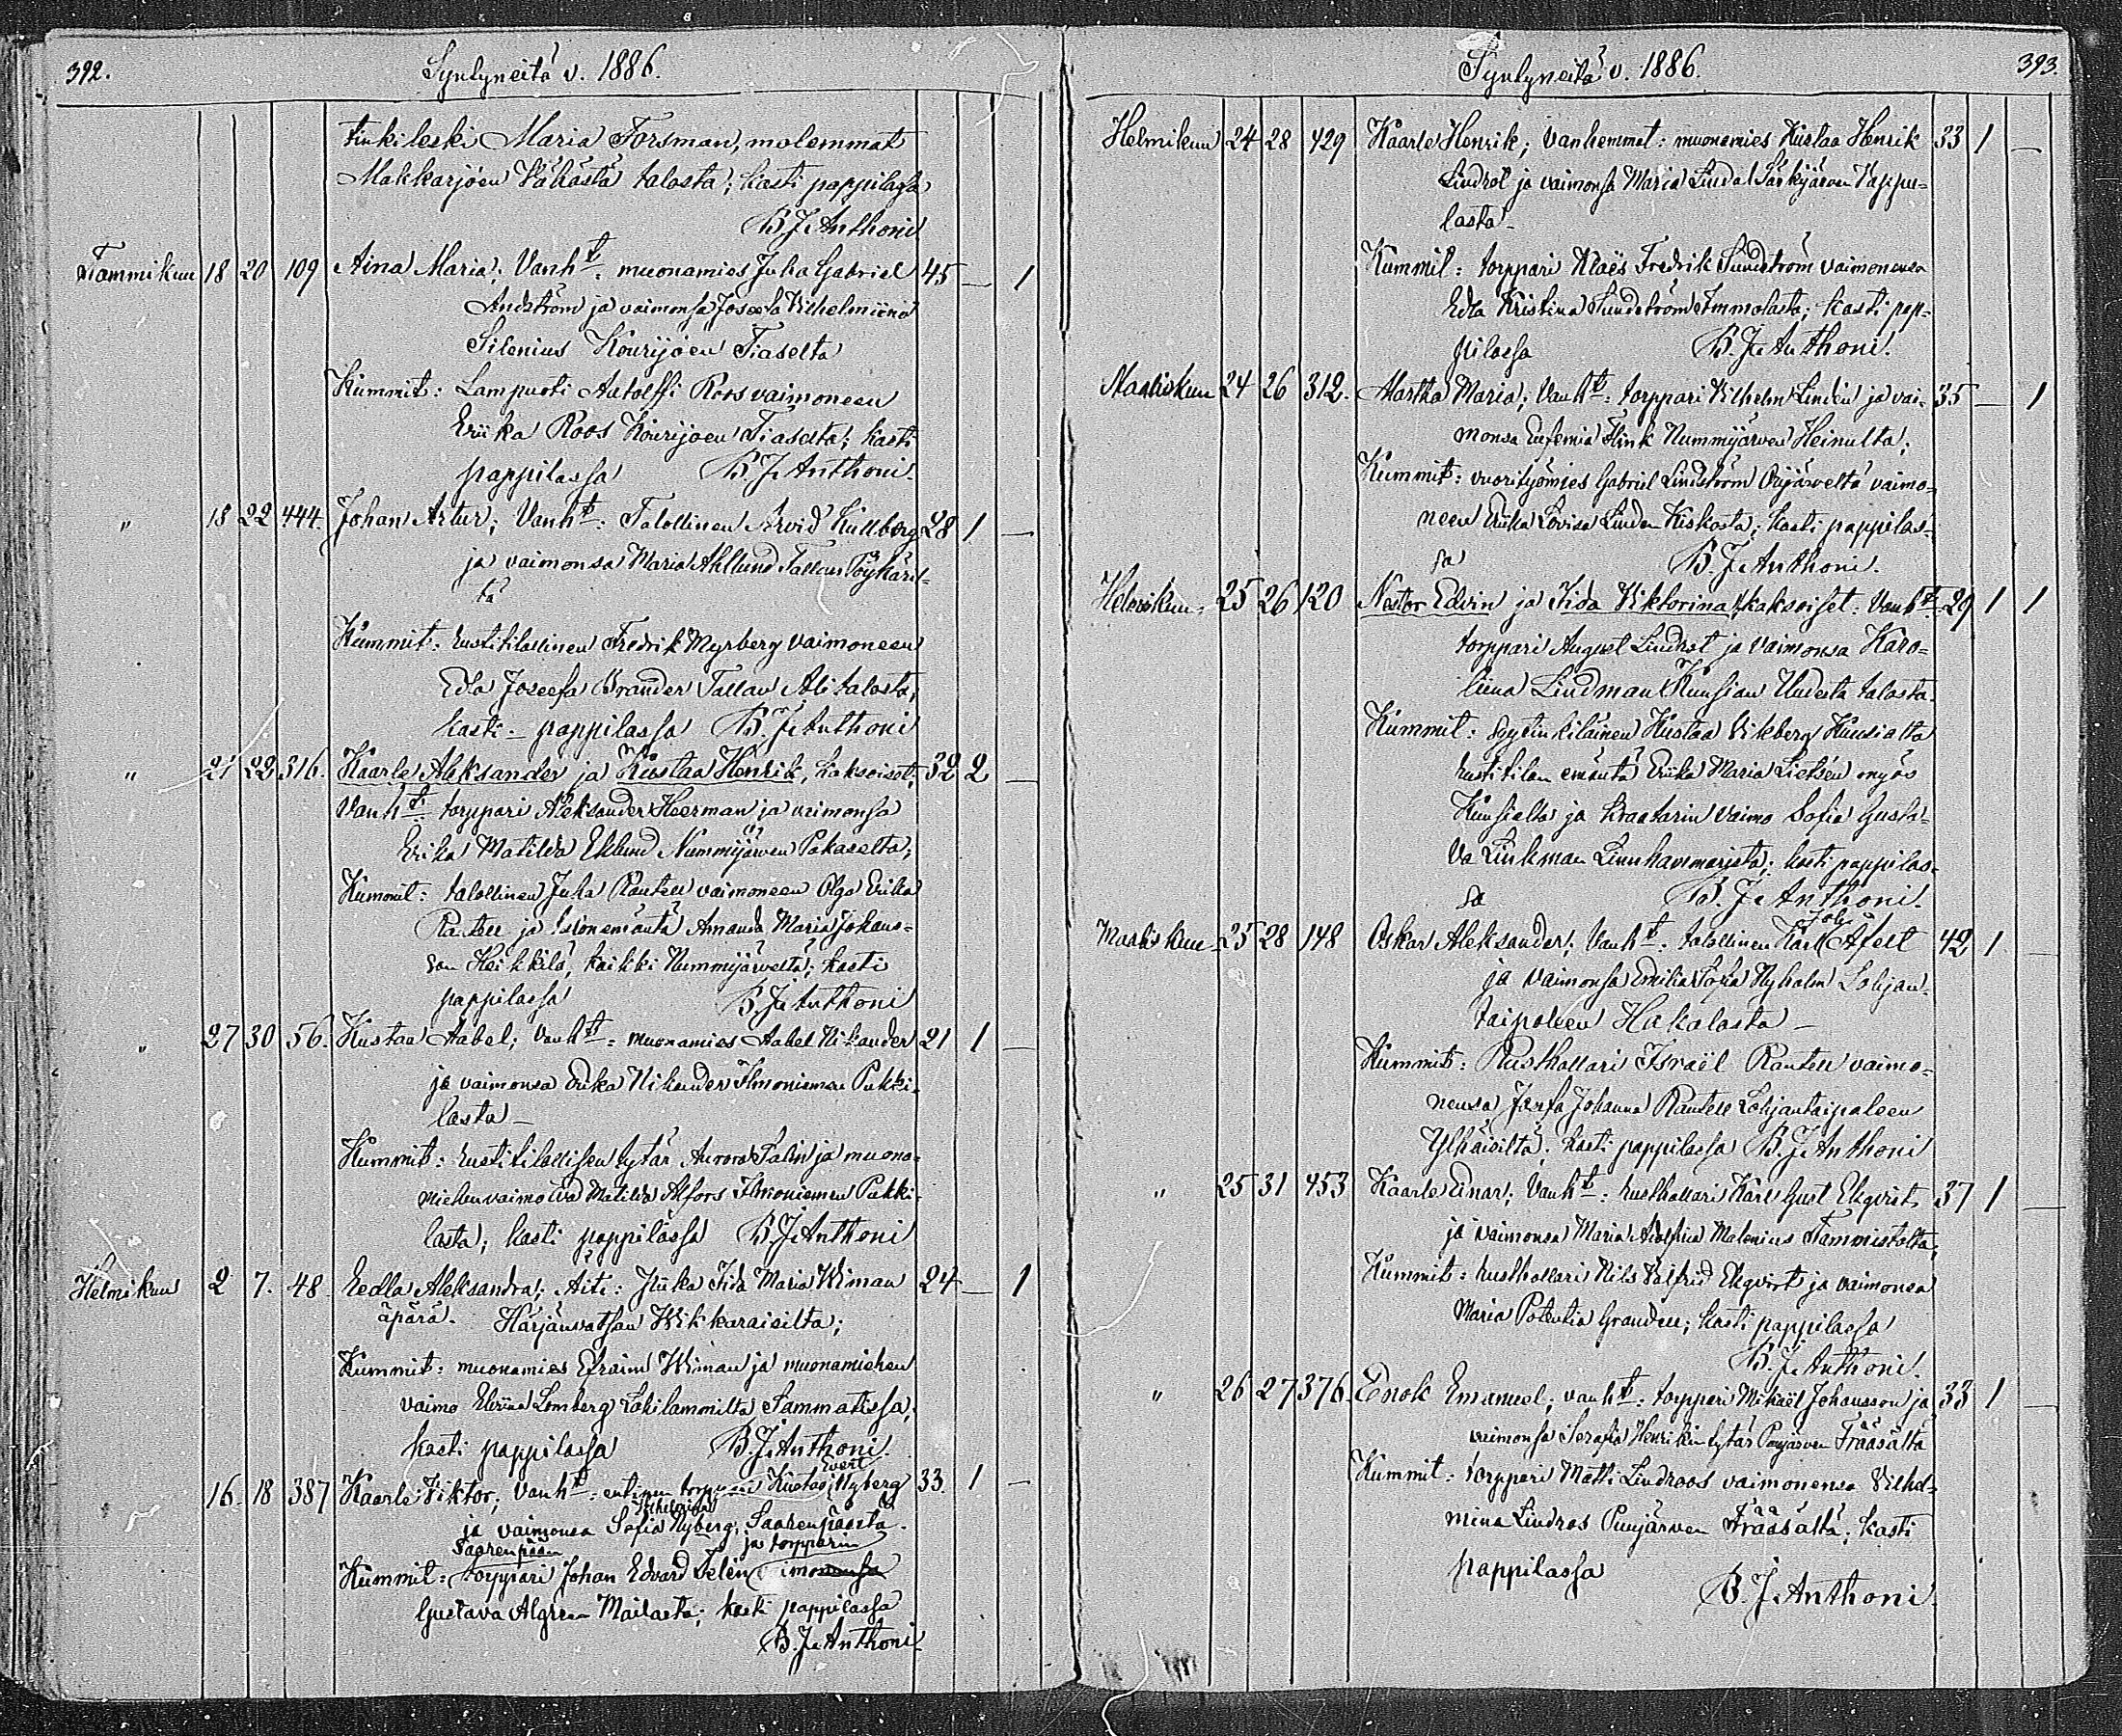 392.
Syntyneitä v. 1886.
tinkileski Maria Forsman, molemmat
Makkarjoen Vähästä talosta; kasti pappilassa
B. J. Anthoni
Tammikuu 18 20 109 Aina Maria; Vanht: muonamies Juha Gabriel 45 — 1
Andström ja vaimonsa Josefa Vilhelmiina
Silenius Kourijoen Tiaselta
Kummit: Lampuoti Aatolffi Roos vaimoneen
Eriika Roos Kourijoen Tiaselta; kasti
pappilassa B. J. Anthoni.
" 18 22 444. Johan Artur; Vanht: Talollinen Arvid Kullberg 28 1 —
ja vaimonsa Maria Ahllund Tallaan Pöykäril-
tä
Kummit: rustitilallinen Fredrik Myrberg vaimoneen
Edla Josefa Brander Tallaan Alitalosta;
kasti pappilassa B. J. Anthoni
" 21 22 316. Kaarle Aleksander ja Kustaa Henrik, kaksoiset; 32 2
Vanht: torppari Aleksander Heerman ja vaimonsa
Erika Matilda Eklund Nummijärven Pakaselta;
Kummit: talollinen Juha Rantell vaimoneen Olga Erika
Rantell ja emäntä Amanda Maria Johans-
son Heikkilä, kaikki Nummijärveltä; kasti
pappilassa B. J. Anthoni
" 27 30 56. Kustaa Aabel; Vanht: muonamies Aabel Nikander 21 1 —
ja vaimonsa Erika Nikander Ilmoniemen Pukki-
lasta —
Kummit: rustitilallisen tytär Aurora Salin ja muona-
miehen vaimo Eva Matilda Alfors Ilmoniemen Pukki-
lasta; kasti pappilassa B. J. Anthoni
Helmikuu 2 7. 48. Eedla Aleksandra; Äiti: Piika Iida Maria Wiman 24 — 1
äpärä. Härjänvatsan Wikkaraisilta;
Kummit: muonamies Efraim Wiman ja muonamiehen
vaimo Eliina Lomberg Lohilammilta Sammatissa;
kasti pappilassa B. J. Anthoni.
Evert
16. 18 387 Kaarle Viktor; Vanht: entinen torppari Kustaa Nyberg 33. 1 —
Vilhelmina
ja vaimonsa Sofia Nyberg; Saarenpäästä.
Saarenpään ja torpparin
Kummit: torppari Johan Edvard Felén vaimonensa
Gustava Algren Mailasta; kasti pappilassa
B. J. Anthoni
393.
Syntyneitä v. 1886.
Helmikuu 24 28 429 Kaarle Henrik; Vanhemmat: muonamies Kustaa Henrik 33 1 —
Lindrot ja vaimonsa Maria Linda Särkijärven Pappi-
lasta
Kummit: torppari Klaes Fredrik Sundström vaimonensa
Edla Kristina Sundström Immolasta; kasti pap-
pilassa B. J. Anthoni.
Maaliskuu 24 26 312. Martha Maria; Vanht: torppari Vilhelm Lindén ja vai- 35 — 1
monsa Eufemia Flink Nummijärven Heinulta;
Kummit: vuorityömies Gabriel Lindström Orijärveltä vaimo-
neen Eriika Lovisa Linden Kiskosta; kasti pappilas-
sa B. J. Anthoni.
Helmikuu 25 26 120 Nestor Edvin ja Iida Viktorina, kaksoiset: Vanht: 29 1 1
torppari August Lindrot ja vaimonsa Karo-
liina Lindman Kuusian Uudesta talosta.
Kummit: syytinkiläinen Kustaa Vikberg Kuusialta
rustitilan emäntä Eriika Maria Lietsén myös
Kuusialta ja kraatarin vaimo Sofia Gusta-
va Linkman Linnhammarista; kasti pappilas-
sa B. J. Anthoni.
Maaliskuu 25 28 148 Oskar Aleksander; Vanht: talollinen Karl Afelt 42 1 —
ja vaimonsa Emilia Sofia Nyholm Lohjan-
taipaleen Hakalasta —
Kummit: Rusthollari Israël Rantell vaimo-
nensa Josefa Johanna Rantell Lohjantaipaleen
Ylhäisiltä; kasti pappilassa B. J. Anthoni
" 25 31 453 Kaarle Einar; Vanht: rusthollari Karl Gust Ekqvist 37 1 —
ja vaimonsa Maria Adolfina Malenius Tammistolta;
Kummit: rusthollari Nils Valfrid Ekqvist ja vaimonsa
Maria Potentia Grandell; kasti pappilassa
B. J. Anthoni.
" 26 27 376. Enok Emanuel; Vanht: torppari Mikael Johansson ja 33 1 —
vaimonsa Serafia Henrikintytär Puujärven Fräasältä
Kummit: torppari Matti Lindroos vaimonensa Vilhel-
mina Lindros Puujärven Fräasältä; kasti
pappilassa B. J. Anthoni.